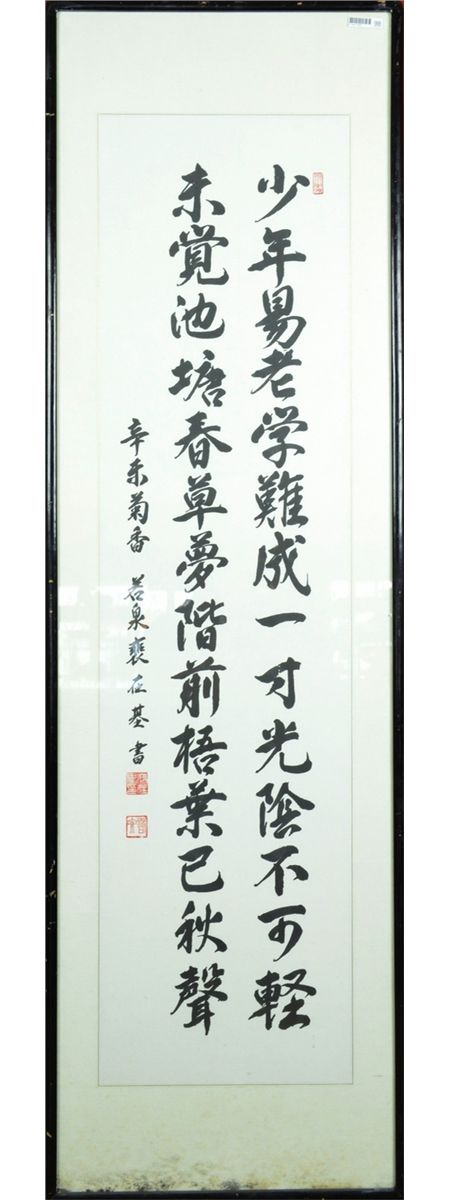 少年易老学難成一寸光陰不可軽
未覚池塘春草夢階前梧葉已秋聲
辛未菊香 若泉裵在基書